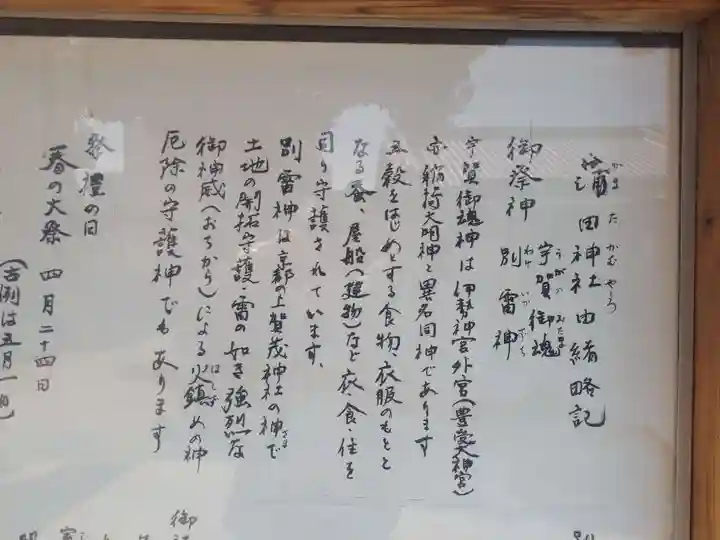 田神社由緒略記
かま た かむ やしろ
御祭神 宇賀御魂
うがの みたま
別雷神
わけ いづ ち
宇賀御魂神は伊勢神宮外宮(豊受大神宮)
亦稲荷大明神と異名同神であります
五穀をはじめとする食物、衣服のもとと
なる蚕、屋船(建物)など衣・食・住を
司り守護されています。
別雷神は京都の上賀茂神社の神で
土地の開拓守護・雷の如き強烈な
御神威(おちから)による火鎮めの神
厄除の守護神でもあります
祭禮の日
春の大祭 四月二十四日
(古例は五月一日)